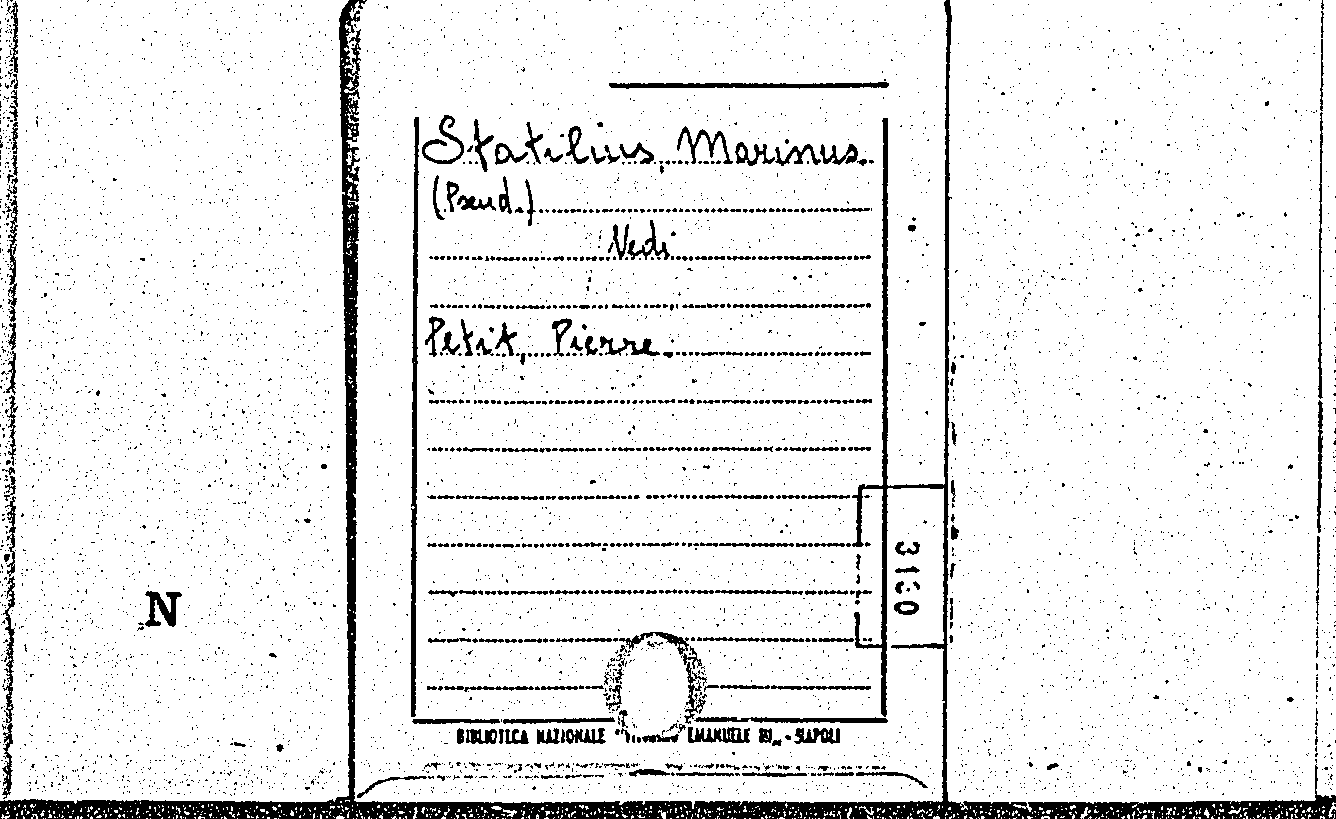 Statilius, Marinus.
(Pseud.)
Vedi
Petit, Pierre.
N
BIBLIOTECA NAZIONALE EMANUELE NAPOLI